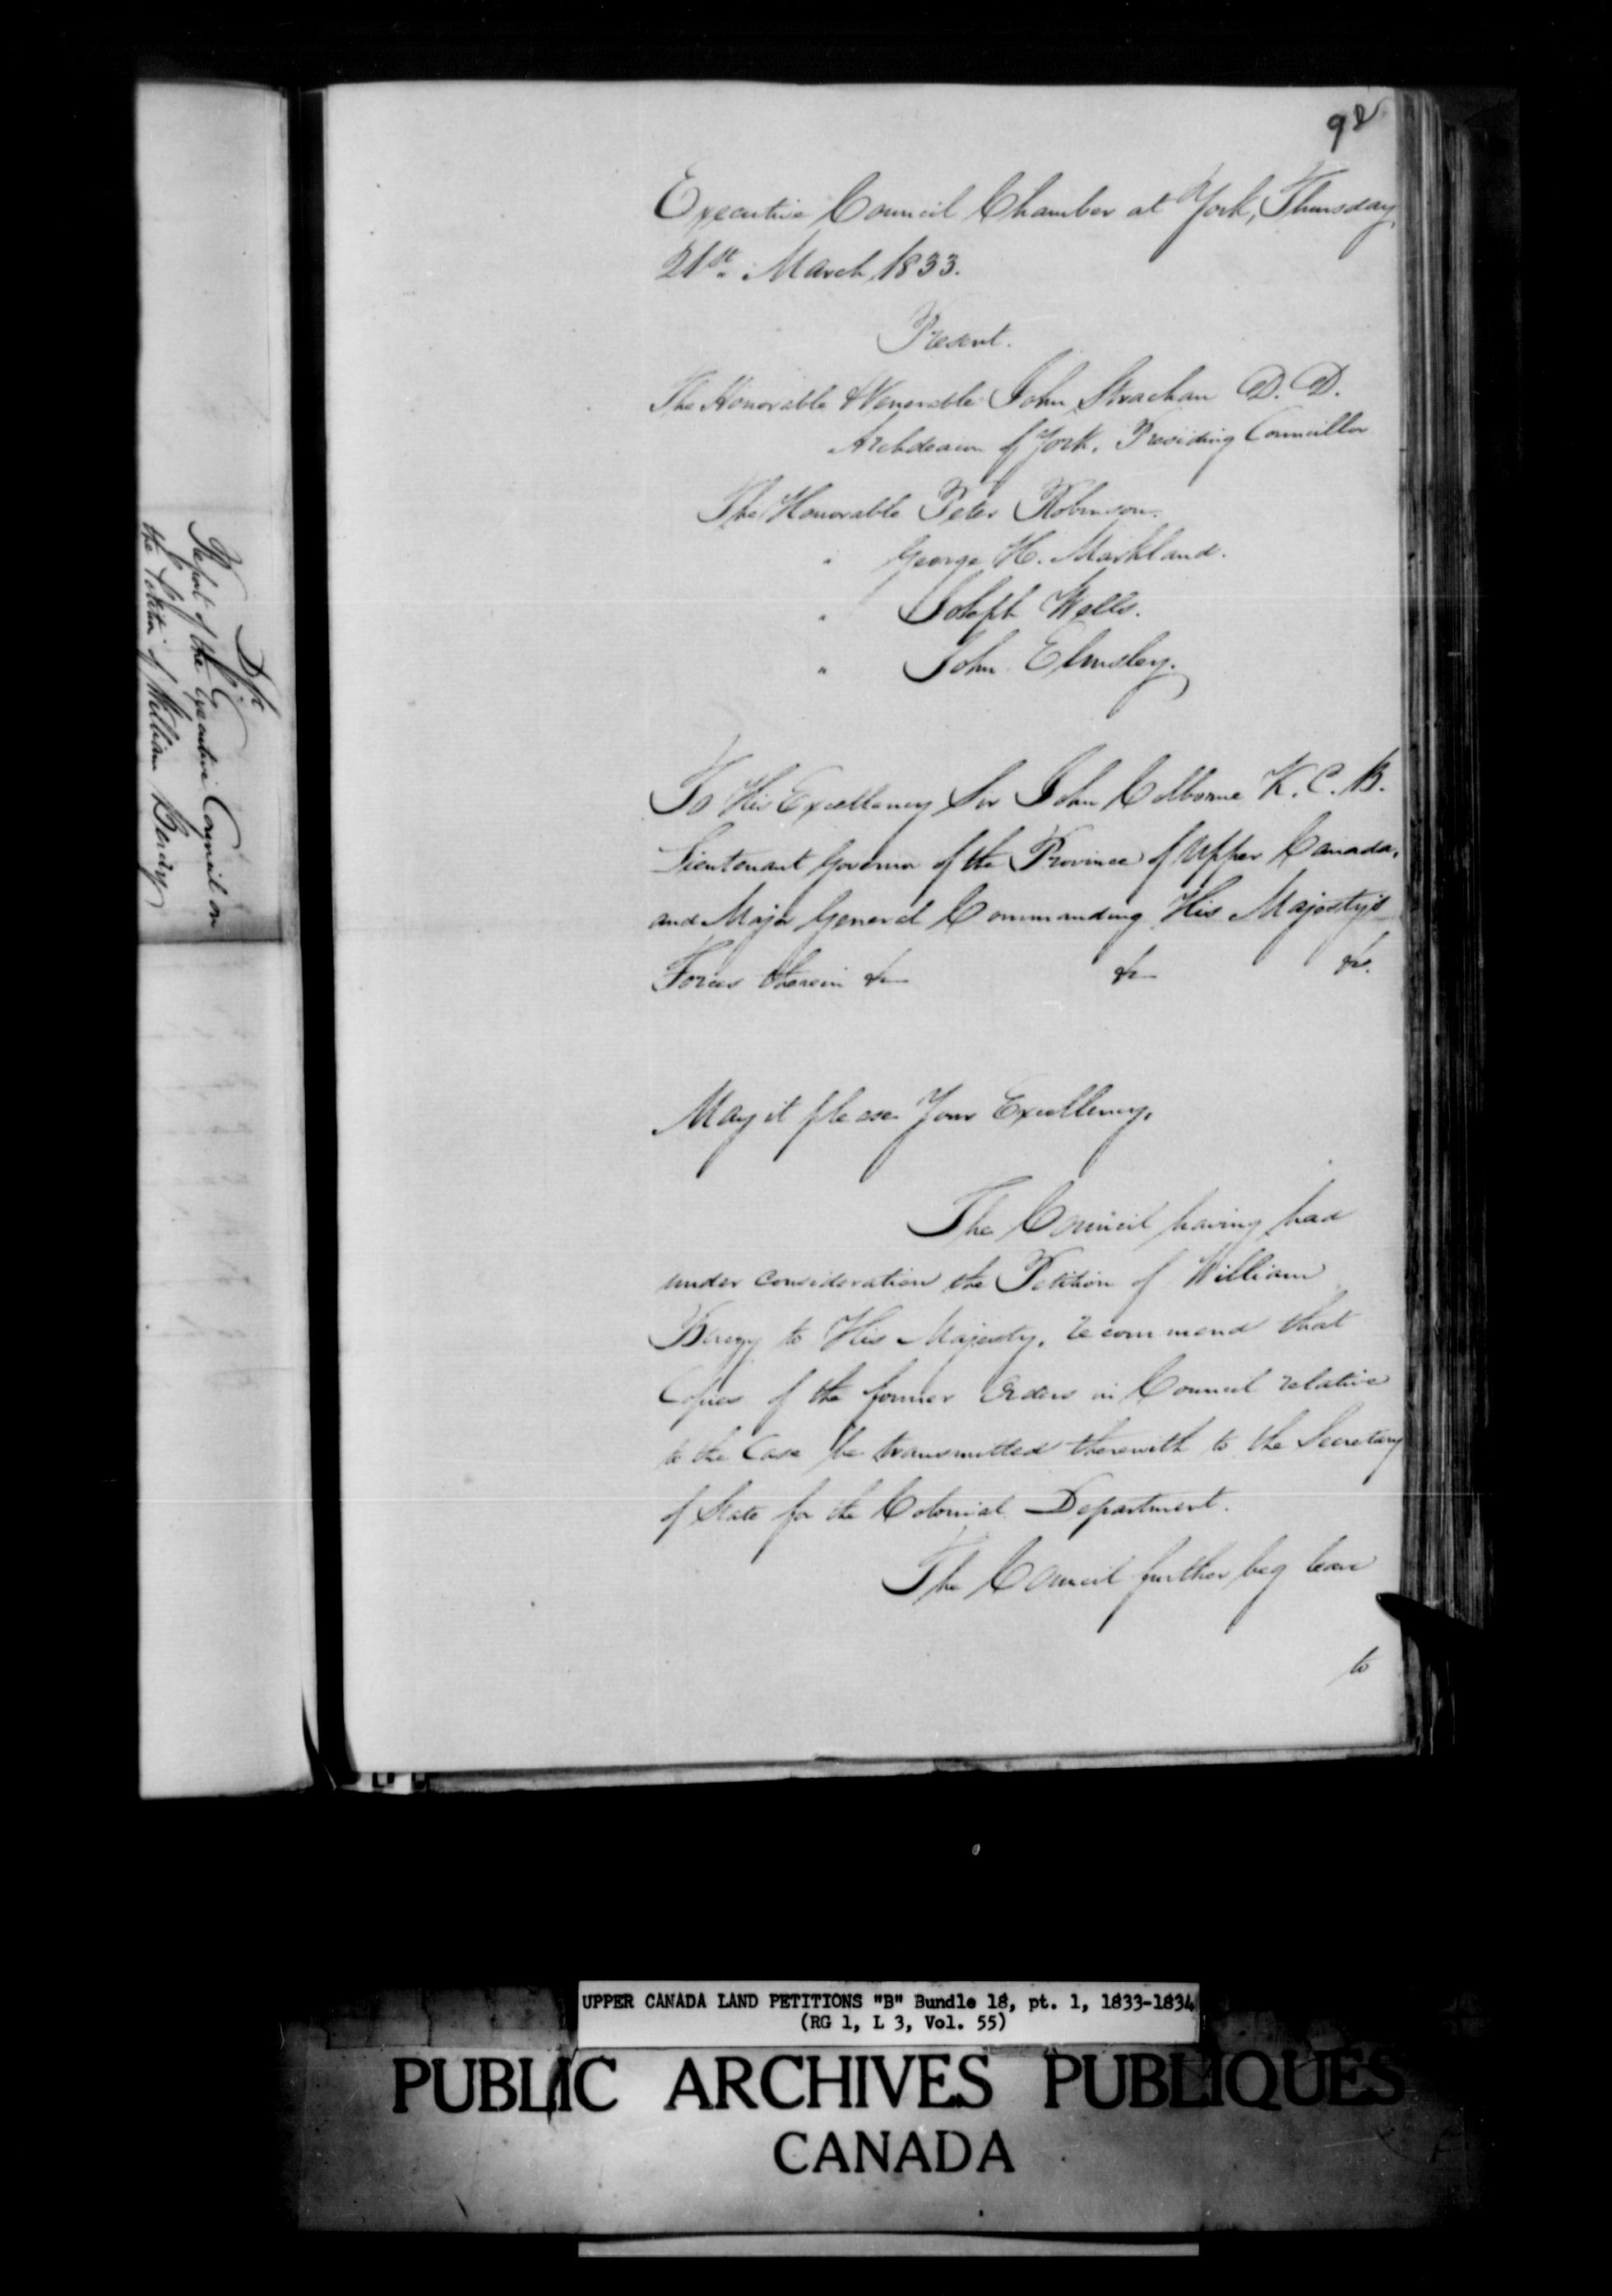 92
Executive Council Chamber at York, Thursday,
21st March 1833.
Present.
The Honorable & Venerable John Strachan D. D.
Archdeacon of York, Presiding Councillor
The Honorable Peter Robinson.
" George H. Markland.
" Joseph Wells.
" John Elmsley.
To His Excellency Sir John Colborne K. C. B.
Lieutenant Governor of the Province of Upper Canada,
and Major General Commanding His Majesty's
Forces therein &c &c &c.
May it please Your Excellency,
The Council having had
under consideration the Petition of William
Berczy to His Majesty, recommend that
Copies of the former Orders in Council relative
to the Case be transmitted therewith to the Secretary
of State for the Colonial Department.
The Council further beg leave
to
Report of the Executive Council on
the Petition of William Berczy
UPPER CANADA LAND PETITIONS "B" Bundle 18, pt. 1, 1833-1834
(RG 1, L 3, Vol. 55)
PUBLIC ARCHIVES PUBLIQUES
CANADA